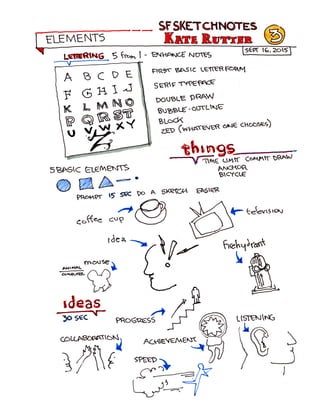 SF SKETCHNOTES
ELEMENTS
KATE RUTTER
3
SEPT 16, 2015
LETTERING 5 from 1 - ENHANCE NOTES
A B C D E
F G H I J
K L M N O
P Q R S T
U V W X Y
Z
FIRST BASIC LETTERFORM
SERIF TYPEFACE
DOUBLE DRAW
BUBBLE-OUTLINE
BLOCK
ZED (WHATEVER ONE CHOOSES)
things
TIME LIMIT COMMIT DRAW
ANCHOR
BICYCLE
5 BASIC ELEMENTS
PROMPT 15 SEC DO A SKETCH EASIER
coffee cup
television
idea
firehydrant
mouse
ANIMAL
COMPUTER
ideas
30 SEC
PROGRESS
LISTENING
COLLABORATION
ACHIEVEMENT
SPEED